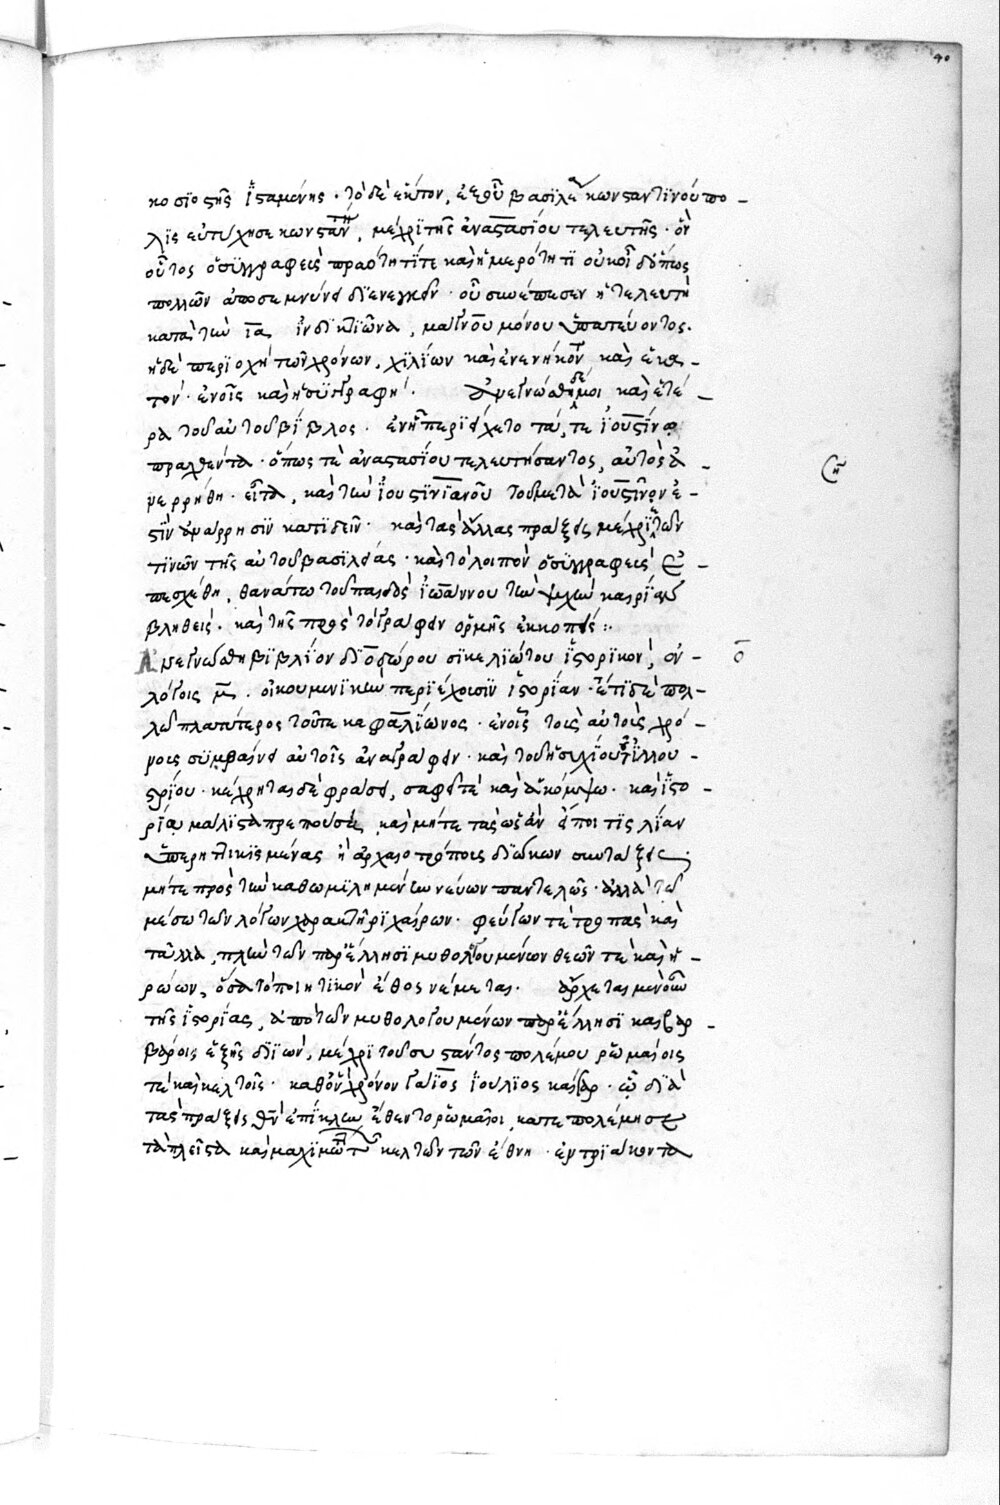 40
κοσιοστῆς ἱσταμένης· τὸ δὲ ἕκτον, ἐξ οὗ βασιλέα κωνσταντινούπο-
λις εὐτύχησε κωνσταντῖνον, μέχρι τῆς ἀναστασίου τελευτῆς· ὃν
οὗτος ὁ συγγραφεὺς πραότητί τε καὶ ἡμερότητι οὐκ οἶδ' ὅπως
πολλῶν ἀποσεμνύνει διενεγκεῖν· οὗ συνέπεσεν ἡ τελευτὴ
κατὰ τὴν ια ἰνδικτιῶνα, μάγνου μόνου ὑπατεύοντος.
ἡ δὲ περιοχὴ τῶν χρόνων, χιλίων καὶ ἐνενήκοντα καὶ ἑκα-
τόν· ἐν οἷς καὶ ἡ συγγραφή. Ἀνεγνώσθη δέ μοι καὶ ἑτέ-
ρα τοῦ αὐτοῦ βίβλος· ἐν ᾗ περιείχετο τά, τε ἰουστίνῳ
πραχθέντα· ὅπως τὲ ἀναστασίου τελευτήσαντος, αὐτὸς ἀ-
νερρήθη· εἶτα, καὶ τὴν ἰουστινιανοῦ τοῦ μετὰ ἰουστῖνον ἔ-
στιν ἀνάρρησιν κατιδεῖν· καὶ τὰς ἄλλας πράξεις μέχρι ἐτῶν
τινῶν τῆς αὐτοῦ βασιλείας· καὶ τὸ λοιπὸν ὁ συγγραφεὺς ἐ-
πεσχέθη, θανάτω τοῦ παιδὸς ἰωάννου τὴν ψυχὴν καιρίαν
βληθείς· καὶ τῆς πρὸς τὸ γράφειν ὁρμῆς ἐκκοπείς:·
Ἀνεγνώσθη βιβλίον διοδώρου σικελιώτου ἱστορικόν, ἐν
λόγοις μ. οἰκουμενικὴν περιέχουσιν ἱστορίαν· ἔτι δὲ πολ-
λῶ πλατύτερος τοῦτε κεφαλίωνος· ἐν οἷς τοὺς αὐτοὺς χρό-
νους συμβαίνει αὐτοῖς ἀναγράφειν· καὶ τοῦ ἡσυχίου τοῦ ἰλλου-
στρίου· κέχρηται δὲ φράσει, σαφεῖ τὲ καὶ ἀκόμψω· καὶ ἱστο-
ρίᾳ μάλιστα πρεπούσῃ, καὶ μήτε τὰς ὡς ἂν εἴποι τις λίαν
ὑπερηττικισμένας ἢ ἀρχαιοτρόπους διώκων συντάξεις
μήτε πρὸς τὴν καθωμιλημένην νεύων παντελῶς· ἀλλὰ τῶ
μέσω τῶν λόγων χαρακτῆρι χαίρων· φεύγων τὲ τροπὰς καὶ
τἄλλα, πλὴν τῶν παρ' ἕλλησι μυθολογουμένων θεῶν τὲ καὶ ἡ-
ρώων, ὅσα τὸ ποιητικὸν ἔθος νέμεται. ἄρχεται μὲν οὖν
τῆς ἱστορίας, ἀπὸ τῶν μυθολογουμένων παρ' ἕλλησι καὶ βαρ-
βάροις ἑξῆς διϊών, μέχρι τοῦ συστάντος πολέμου ῥωμαίοις
τὲ καὶ κελτοῖς· καθ' ὃν χρόνον γάϊος ἰούλιος καίσαρ· ᾧ διὰ
τὰς πράξεις θεῖον ἐπίκλην ἔθεντο ῥωμαῖοι, κατεπολέμησε
τὰ πλεῖστα καὶ μαχιμώτατα κελτῶν τῶν ἔθνη· ἐν τριάκοντα
ση
ο